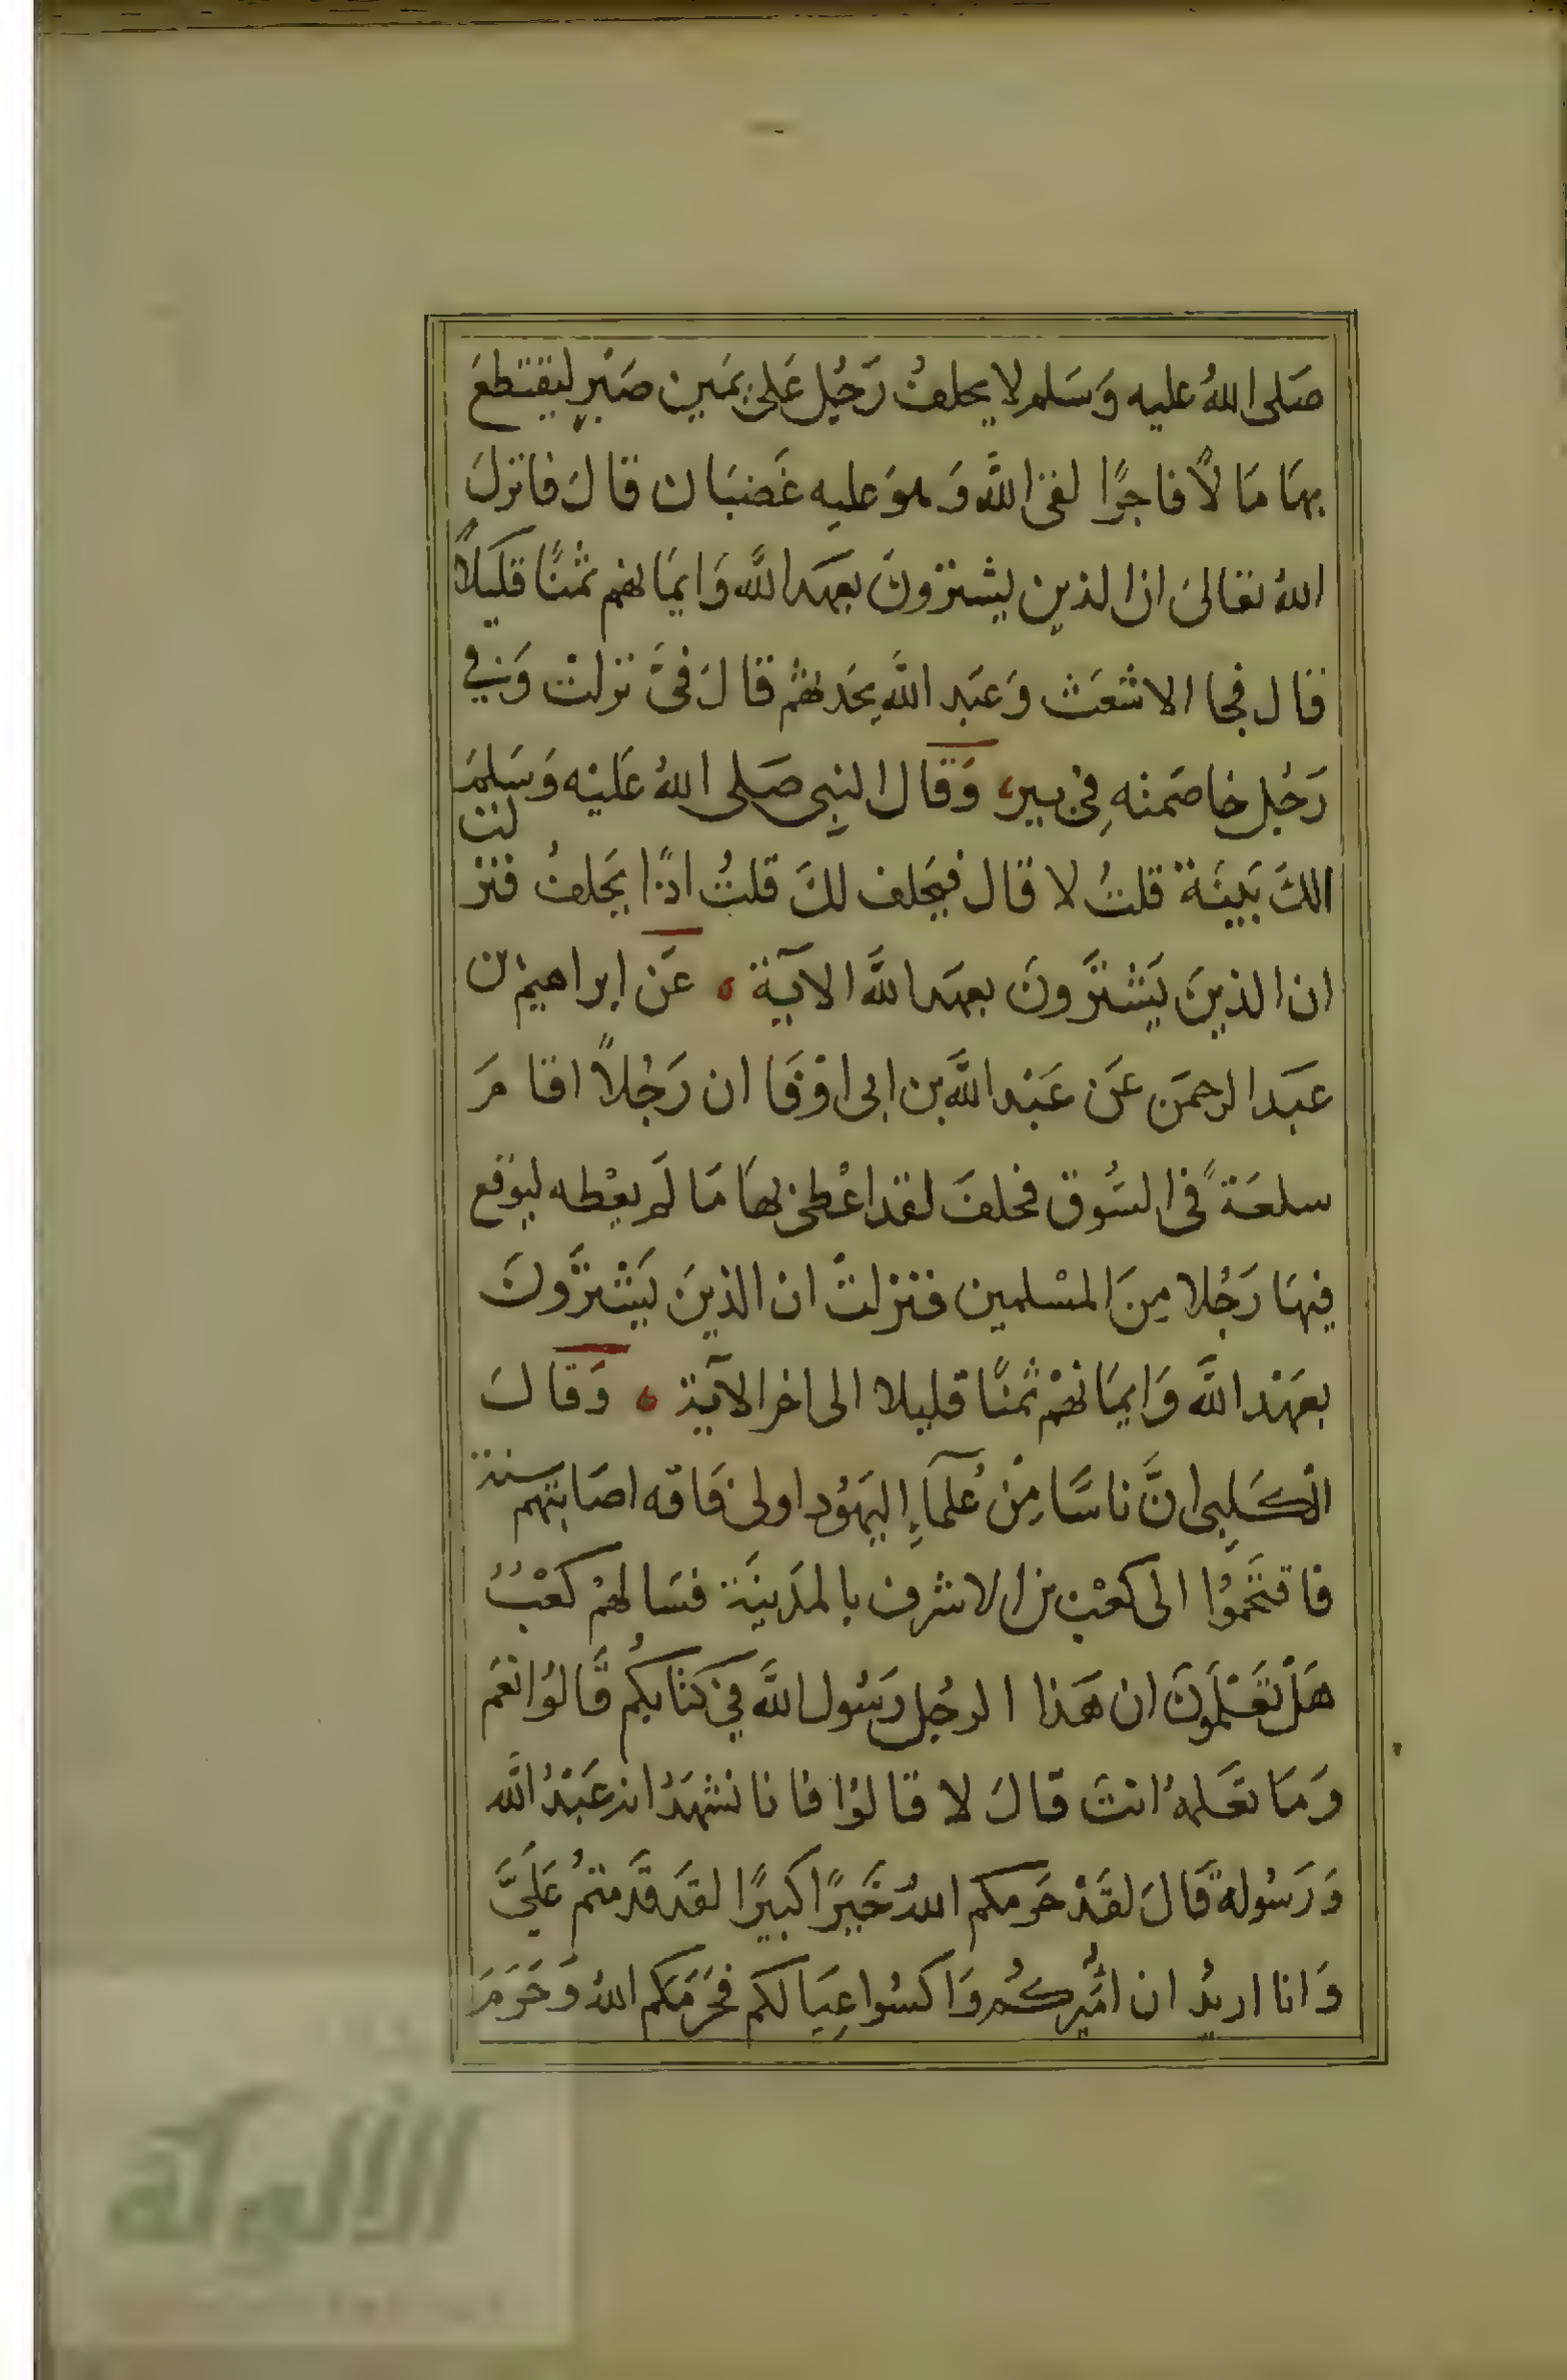 صَلى اللهُ عليه وَسَلم لا يحلفُ رَجُل عَلى يمَين صَبْرٍ ليقتطعَ
بهَا مَالاً فاجرًا لقى اللهَ وَهوَ عليه غَضبَان قالَ فانزلَ
اللهُ تعَالىَ ان الذين يشترونَ بعهد اللهِ وَايمَانهم ثمنًا قليلاً
قال فجا الاشعَث وَعَبد الله يحَدثهُم قالَ فىَّ نزلتْ وَفي
رَجُل خاصَمته فِى بير، وَقال النبِى صَلى اللهُ عَليْه وَسَلمَ
الكَ بَينَة قلتُ لا قال فيَحلف لكَ قلتُ اذًا يَحلفُ فنزلت
ان الذينَ يَشترَونَ بعهَد اللهَ الآيَة ، عَن إبراهيمْ بن
عَبَد الرحمَن عَن عَبْد اللهَ بن ابى اوْفَا ان رَجُلاً اقامَ
سلعَةً فى السُّوق فحلفَ لقد اعْطى بهَا مَا لَم يعْطه ليوقع
فيهَا رَجُلا مِنَ المسْلمين فنزلتْ ان الذينَ يَشترُونَ
بعَهْد اللهَ وَايمَانهْم ثمنًا قليلا الى اخر الآيَة ، وَقالَ
الكَلِبى انَّ ناسًا مِنْ عُلمآءِ اليَهوُد اولى فَاقه اصَابتهم سنة
فاقتحَموُا الى كعْب بن الاشرف بالمدَينَة فسَالهمْ كعْبُ
هَلْ تعَلمَونَ ان هَذا الرجُل رَسُول اللهَ في كتابكُم قَالوُا نعَم
وَمَا تعَلمهُ انتَ قالَ لا قالوُا فانا نشهَدُ انه عَبْدُ الله
وَرَسُوله قَالَ لقَدْ حَرمكم اللهُ خَيرًا كبيرًا لقد قَدمتمُ عَلىَّ
وَانا اريدُ ان اميُركُم وَاكسُوا عِيَالكم فحَرَمَكم اللهُ وَحَرمَ